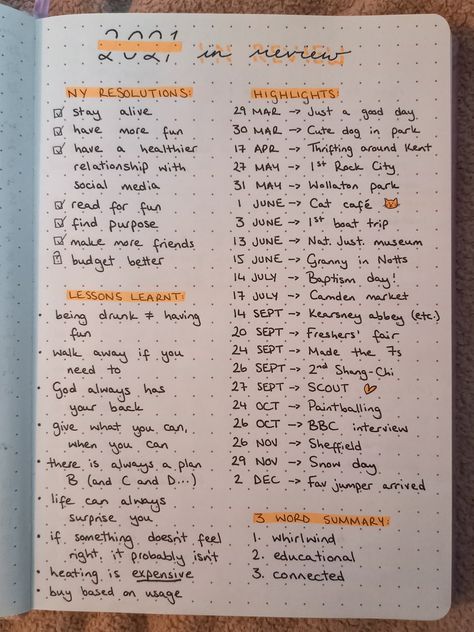 2021 in review
NY RESOLUTIONS:
stay alive
have more fun
have a healthier
relationship with
social media
read for fun
find purpose
make more friends
budget better
LESSONS LEARNT:
• being drunk ≠ having
fun
• walk away if you
need to
• God always has
your back
• give what you can,
when you can
• there is always a plan
B (and C and D...)
• life can always
surprise you
• if something doesn't feel
right, it probably isn't
• heating is expensive
• buy based on usage
HIGHLIGHTS:
29 MAR → Just a good day
30 MAR → Cute dog in park
17 APR → Thrifting around Kent
27 MAY → 1st Rock City
31 MAY → Wollaton park
1 JUNE → Cat café
3 JUNE → 1st boat trip
13 JUNE → Nat. Just. museum
15 JUNE → Granny in Notts
14 JULY → Baptism day!
17 JULY → Camden market
14 SEPT → Kearsney abbey (etc.)
20 SEPT → Freshers' fair
24 SEPT → Made the 7s
26 SEPT → 2nd Shang-Chi
27 SEPT → SCOUT
24 OCT → Paintballing
26 OCT → BBC interview
26 NOV → Sheffield
29 NOV → Snow day
2 DEC → Fav jumper arrived
3 WORD SUMMARY:
1. whirlwind
2. educational
3. connected